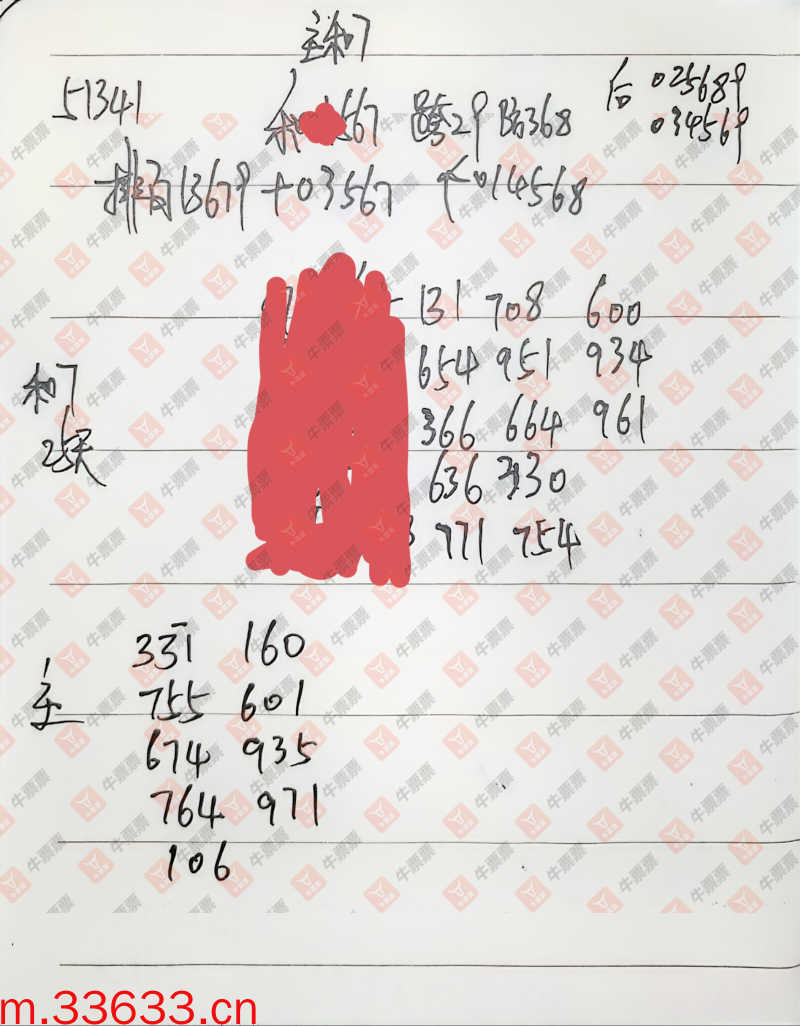 主和7
51341 和 567 跨29 防368 后 025689
034569
排百13679 十03567 个014568
131 708 600
654 951 934
和7 366 664 961
25天 636 330
3 771 754
331 160
主 755 601
674 935
764 971
106
m.33633.cn
牛票票